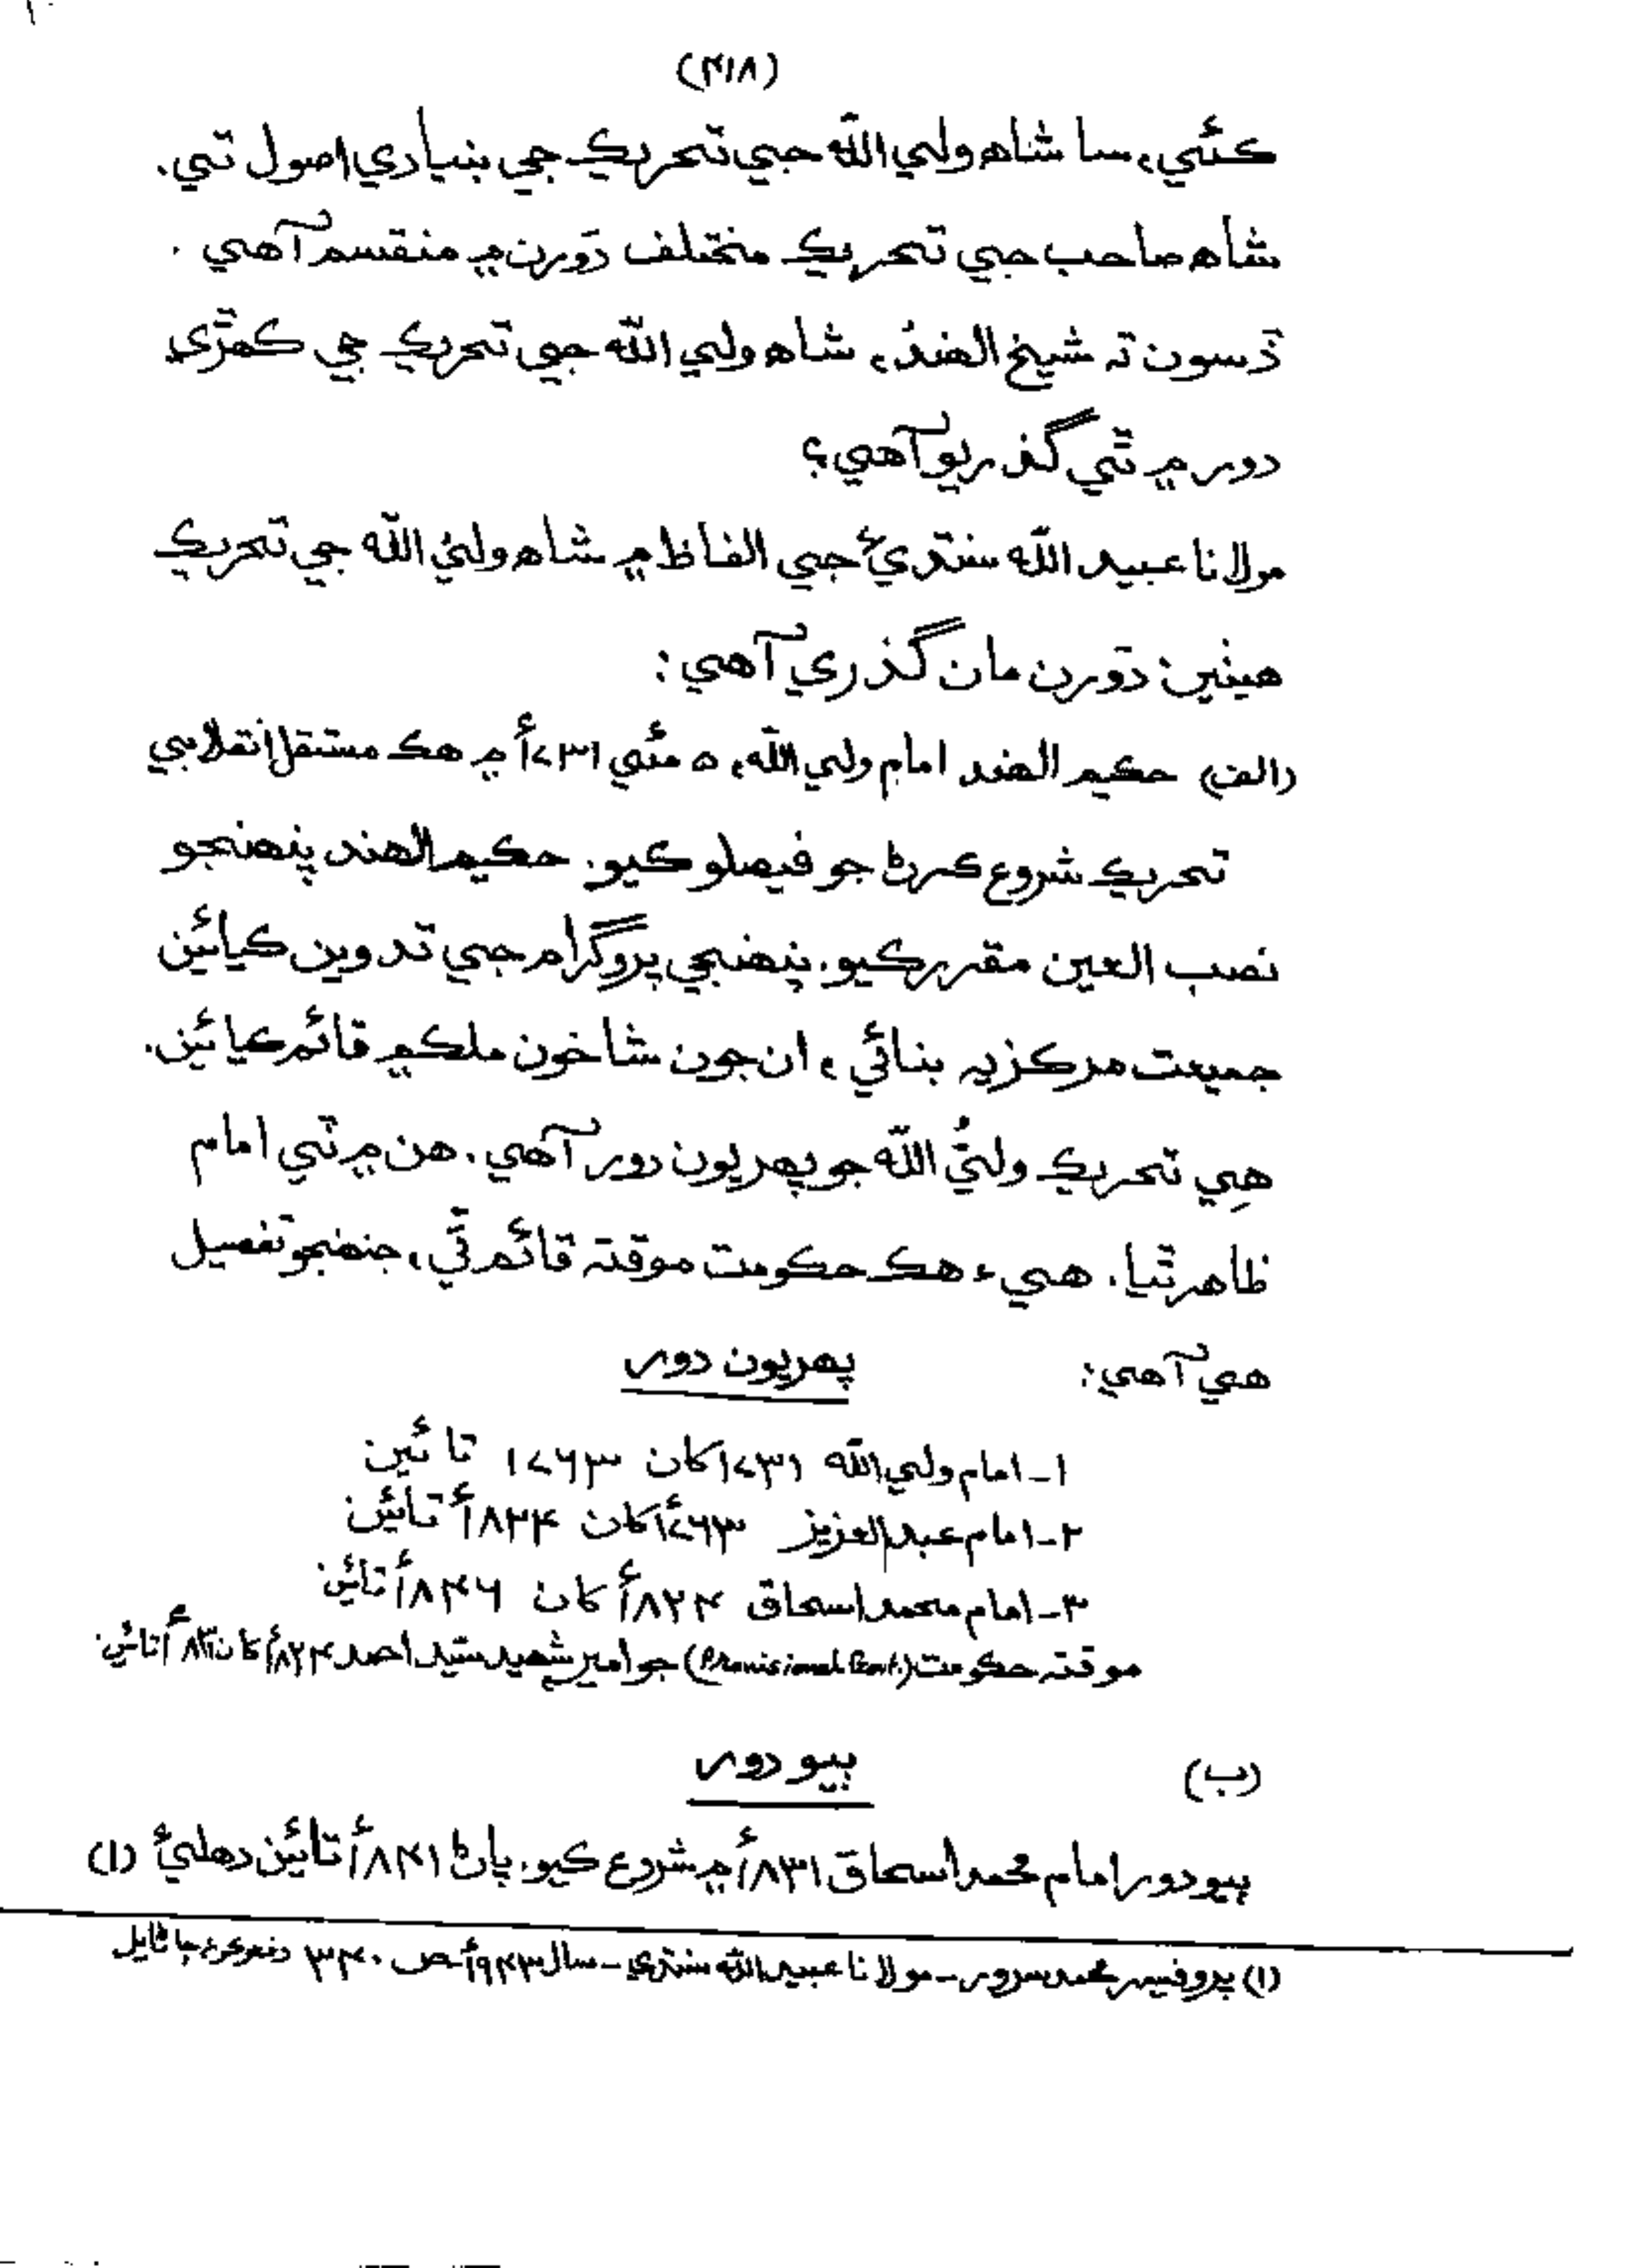 (۴۱۸)
ڪئي، سا شاھ ولي الله جي تحريڪ جي بنيادي اصول تي.
شاھ صاحب جي تحريڪ مختلف دَورن ۾ منقسم آھي.
ڏسون ته شيخ الھندؒ، شاھ ولي الله جي تحريڪ جي ڪھڙي
دور ۾ ٿي گذريو آھي؟
مولانا عبيد الله سنڌيءَ جي الفاظ ۾ شاھ وليُ الله جي تحريڪ
ھيٺين دَورن مان گذري آھي:
(الف) حڪيم الھند امام ولي الله، ۵ مئي ۱۷۳۱ع ۾ ھڪ مستقل انقلابي
تحريڪ شروع ڪرڻ جو فيصلو ڪيو. حڪيم الھند پنھنجو
نصب العين مقرر ڪيو. پنھنجي پروگرام جي تدوين ڪيائين
جميعت مرڪزيه بنائي، ان جون شاخون ملڪ ۾ قائم ڪيائين.
ھِي تحريڪ وليُ الله جو پھريون دور آھي. ھن ۾ ٽي امام
ظاھر ٿيا. ھيء ھڪ حڪومت موقته قائم ٿي، جنھنجو تفصيل
ھي آھي:
پھريون دور
۱- امام ولي الله ۱۷۳۱ کان ۱۷۶۳ تائين
۲- امام عبدالعزيز ۱۷۶۳ع کان ۱۸۲۴ع تائين
۳- امام محمد اسحاق ۱۸۲۴ع کان ۱۸۴۶ع تائين
موقته حڪومت (Provisional Govt.) جو امير شھيد سيّد احمد ۱۸۲۴ع کان تائين
(ب)
ٻيو دور
ٻيو دور امام محمد اسحاق ۱۸۳۱ع ۾ شروع ڪيو. پاڻ ۱۸۴۱ع تائين دھليءَ (۱)
(۱) پروفيسر محمد سرور - مولانا عبيدالله سنڌي - سال ۱۹۴۳ع - ص ۳۴۰